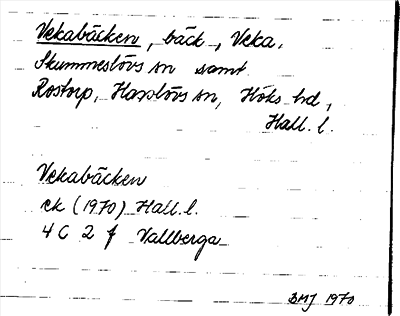 Vekabäcken, bäck, Veka,
Skummeslövs sn samt
Rostorp, Hasslövs sn, Höks hd,
Hall. l.
Vekabäcken
ek (1970) Hall. l.
4 C 2 f Vallberga
BMJ 1970